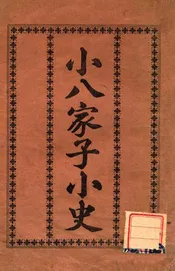 小八家子小史